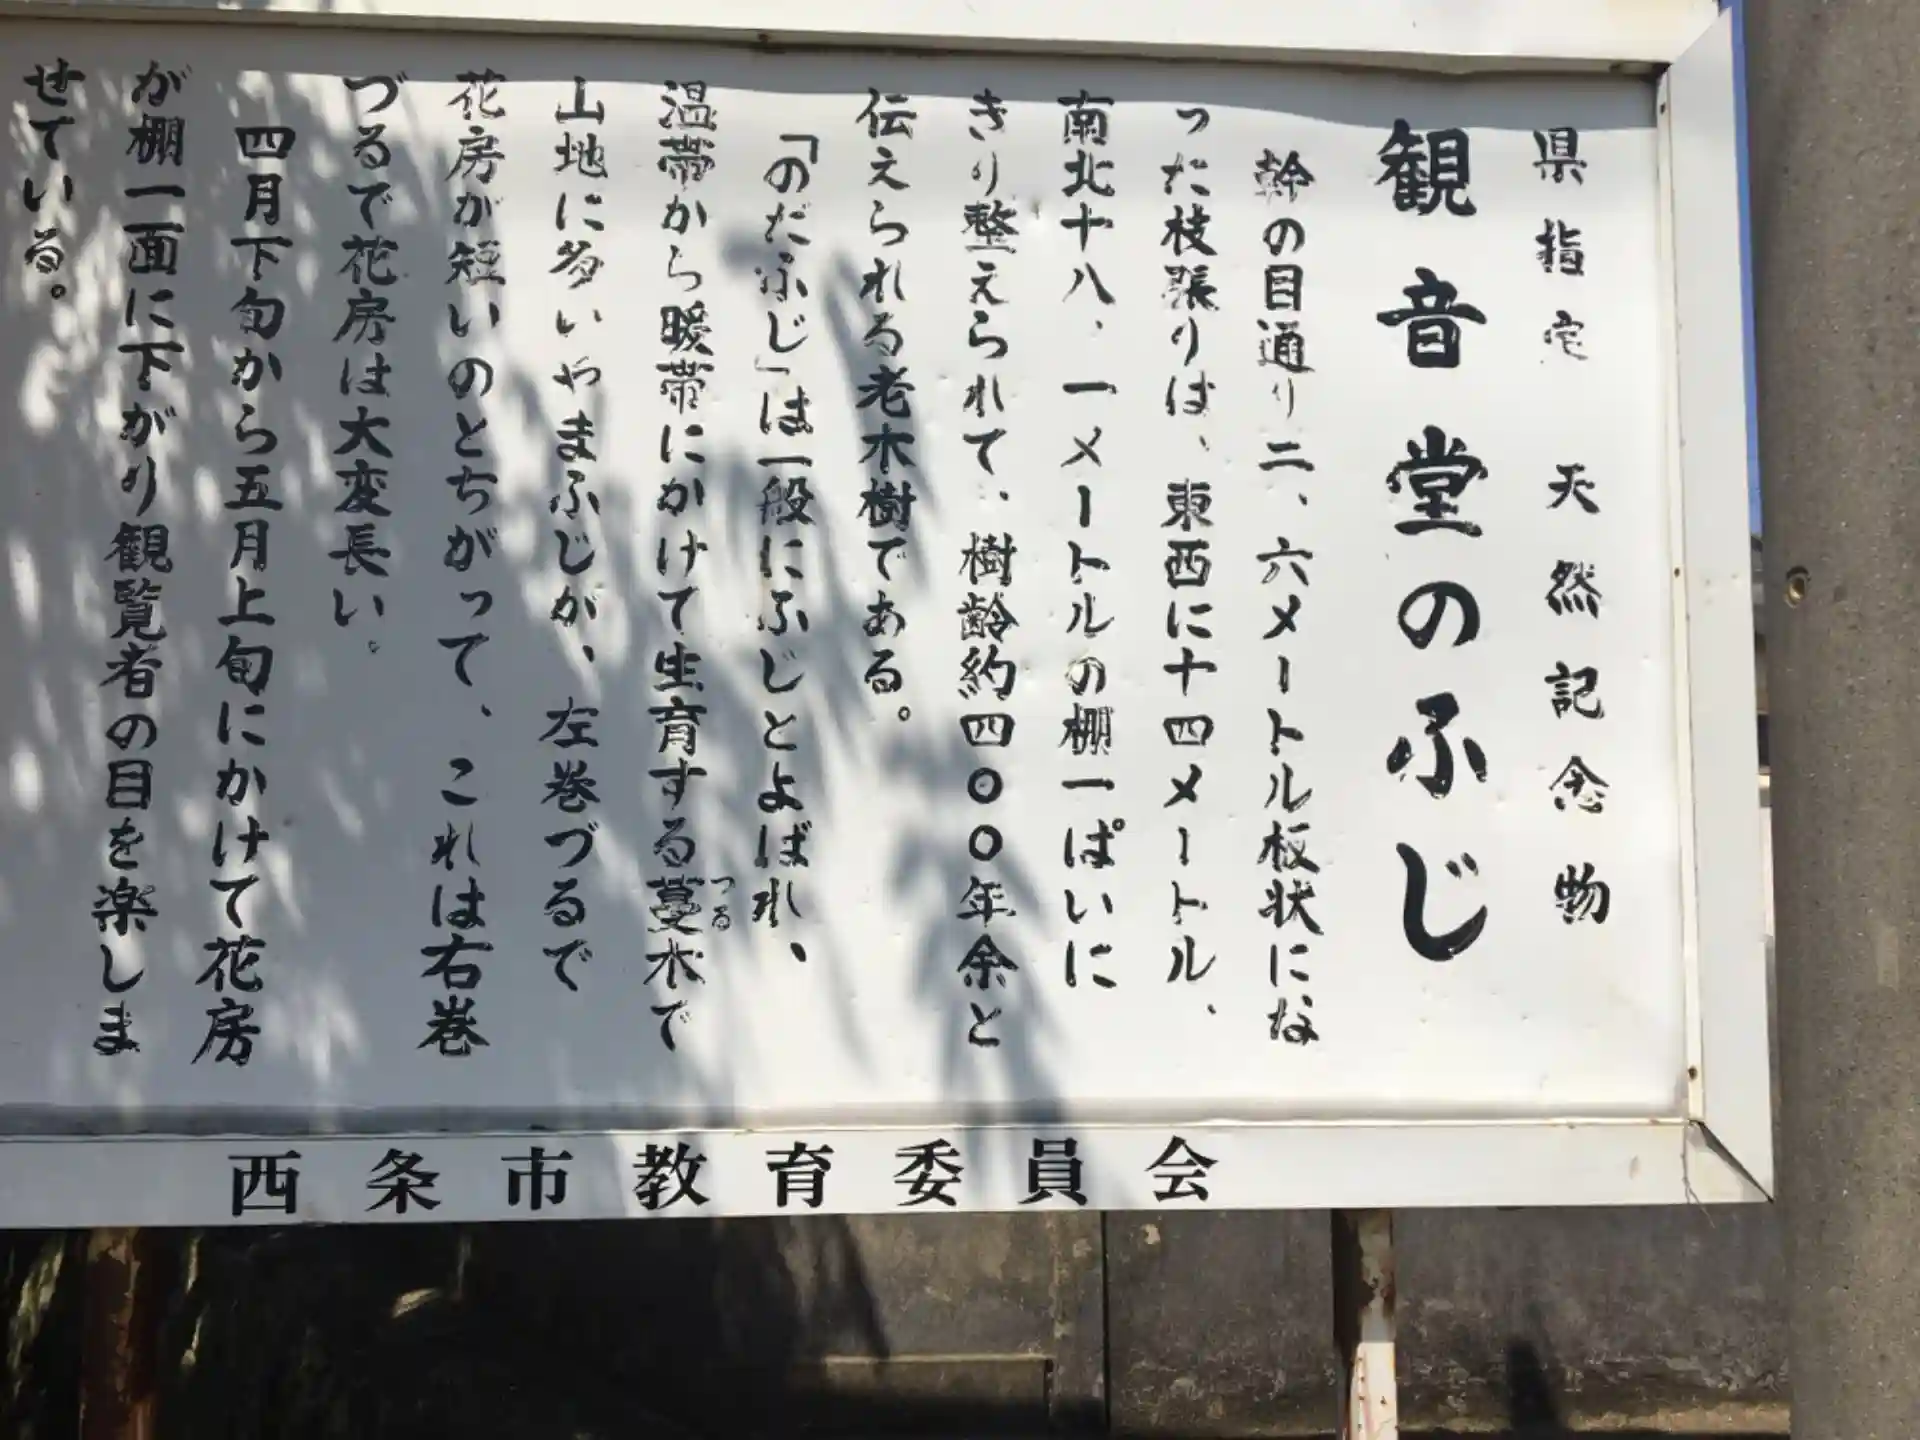 県指定 天然記念物
観音堂のふじ
幹の目通り二、六メートル板状にな
った枝張りは、東西に十四メートル、
南北十八、一メートルの棚一ぱいに
きり整えられて、樹齢約四〇〇年余と
伝えられる老木樹である。
「のだふじ」は一般にふじとよばれ、
温帯から暖帯にかけて生育する蔓木で
つる
山地に多いやまふじが、左巻づるで
花房が短いのとちがって、これは右巻
づるで花房は大変長い。
四月下旬から五月上旬にかけて花房
が棚一面に下がり観覧者の目を楽しま
せている。
西条市教育委員会